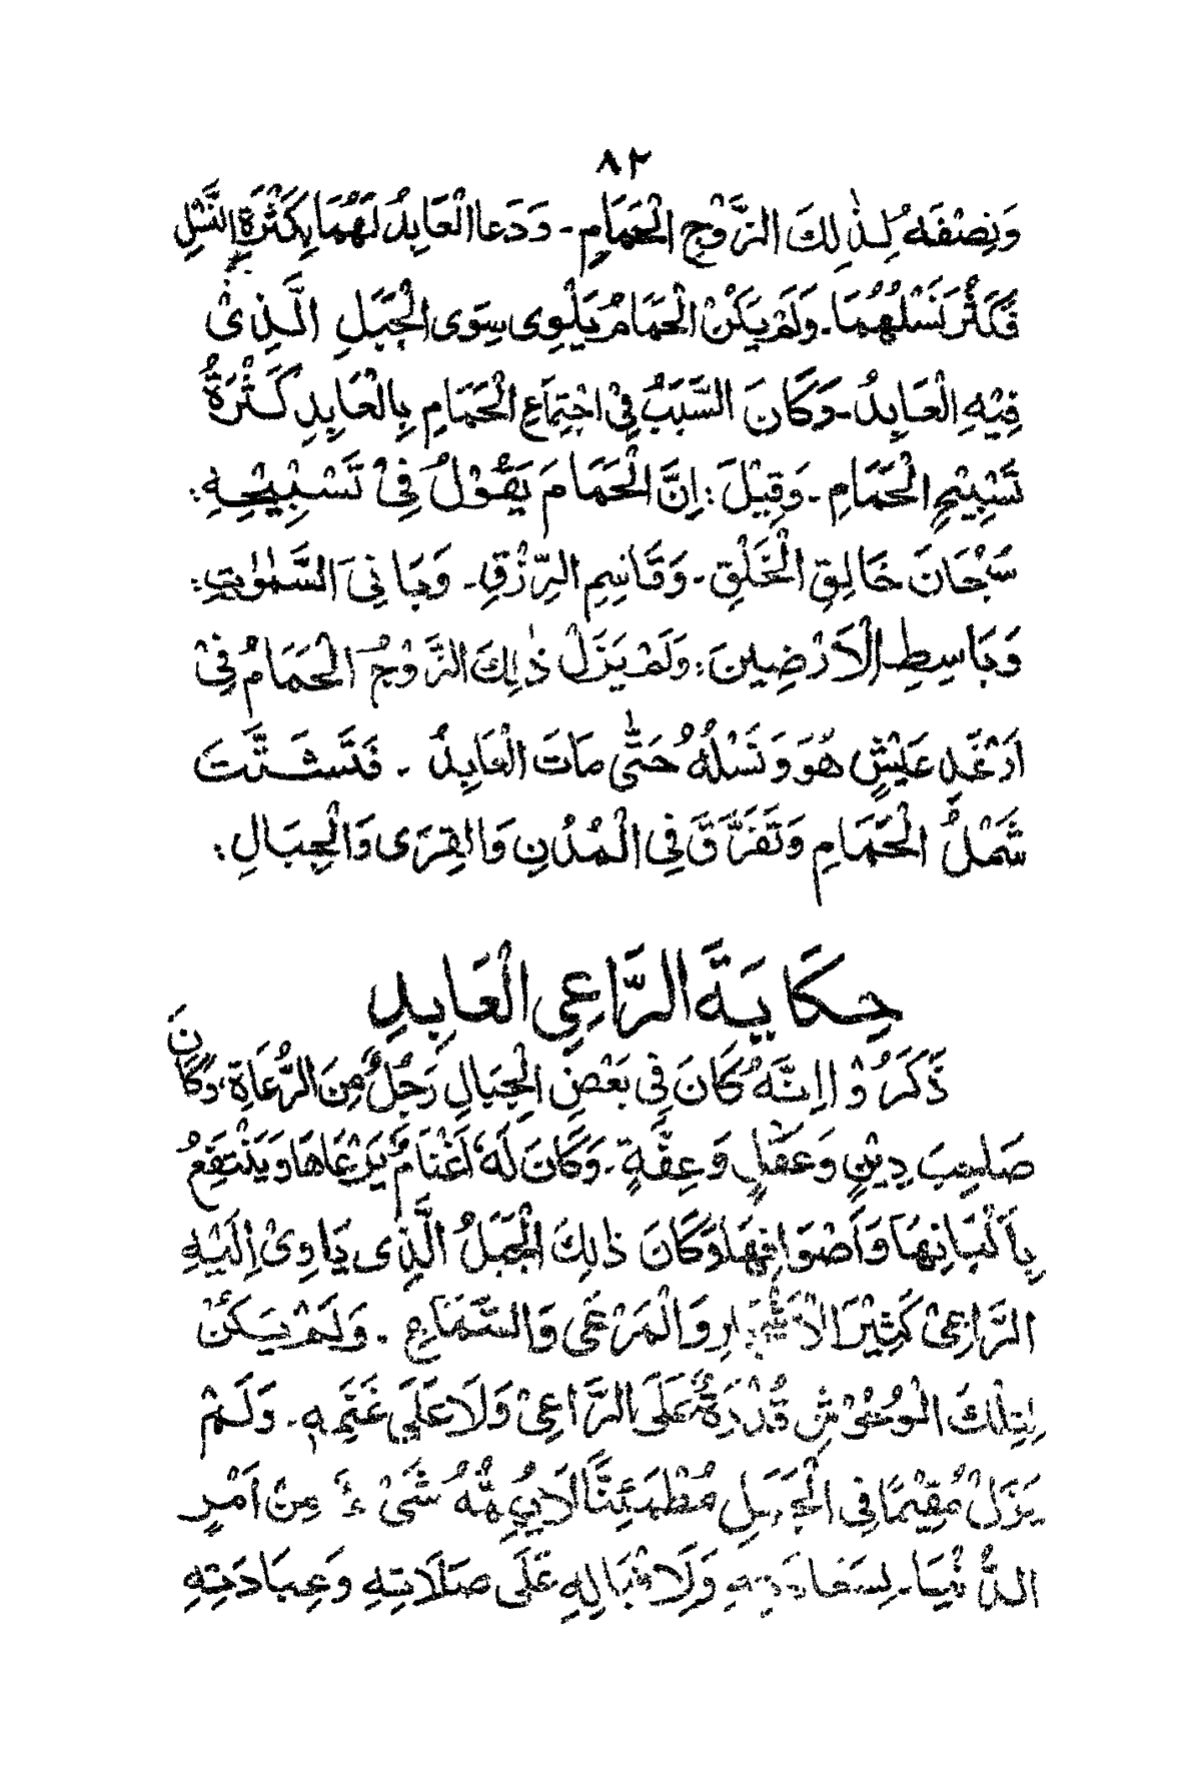 ٨٢
وَنِصْفَهٗ لِذٰلِكَ الزَّوْجِ الْحَمَامِ۔ وَدَعَا الْعَابِدُ لَهُمَا بِكَثْرَةِ النَّسْلِ
فَكَثُرَ نَسْلُهُمَا۔ وَلَمْ يَكُنْ الْحَمَامُ يَلْوِى سِوَى الْجَبَلِ الَّذِىْ
فِيْهِ الْعَابِدُ۔ وَكَانَ السَّبَبُ فِىْ اجْتِمَاعِ الْحَمَامِ بِالْعَابِدِ كَثْرَةُ
تَسْبِيْحِ الْحَمَامِ۔ وَقِيْلَ: اِنَّ الْحَمَامَ يَقُوْلُ فِىْ تَسْبِيْحِهٖ:
سُبْحَانَ خَالِقِ الْخَلْقِ۔ وَقَاسِمِ الرِّزْقِ۔ وَبَانِىَ السَّمٰوٰتِ:
وَبَاسِطِ الْاَرْضِينَ: وَلَمْ يَزَلْ ذٰلِكَ الزَّوْجُ الْحَمَامُ فِىْ
اَرْغَدِ عَيْشٍ هُوَ وَنَسْلُهُ حَتّٰى مَاتَ الْعَابِدُ ۔ فَتَشَتَّتَ
شَمْلُ الْحَمَامِ وَتَفَرَّقَ فِى الْمُدُنِ وَالقِرَى وَالْجِبَالِ:
حِكَايَةَ الرَّاعِى الْعَابِدِ
ذَكَرُوْا اِنَّهُ كَانَ فِى بَعْضِ الْجِبَالِ رَجُلٌ مِنَ الرُّعَاةِ، وَكَانَ
صَاحِبَ دِيْنٍ وَعَقْلٍ وَعِفَّةٍ۔ وَكَانَ لَهٗ اَغْنَامٌ يَرْعَاهَا وَيَنْتَفِعُ
بِاَلْبَانِهَا وَاَصْوَافِهَا وَكَانَ ذٰلِكَ الْجَبَلُ الَّذِى يَاوِىْ اِلَيْهِ
الرَّاعِىْ كَثِيْرَ الْاَشْجَارِ وَالْمَرْعَى وَالسَّمَاعِ ۔ وَلَمْ يَكُنْ
لِتِلْكَ الْوُحُوْشِ قُدْرَةٌ عَلَى الرَّاعِىْ وَلَا عَلَى غَنَمِهٖ۔ وَلَمْ
يَزَلْ مُقِيْمًا فِى الْجَبَلِ مُطْمَئِنًّا لَا يُهِمُّهُ شَىْءٌ مِنْ اَمْرِ
الدُّنْيَا۔ لِسَعَادَتِهِ وَلِاقْبَالِهِ عَلَى صَلَاتِهِ وَعِبَادَتِهِ